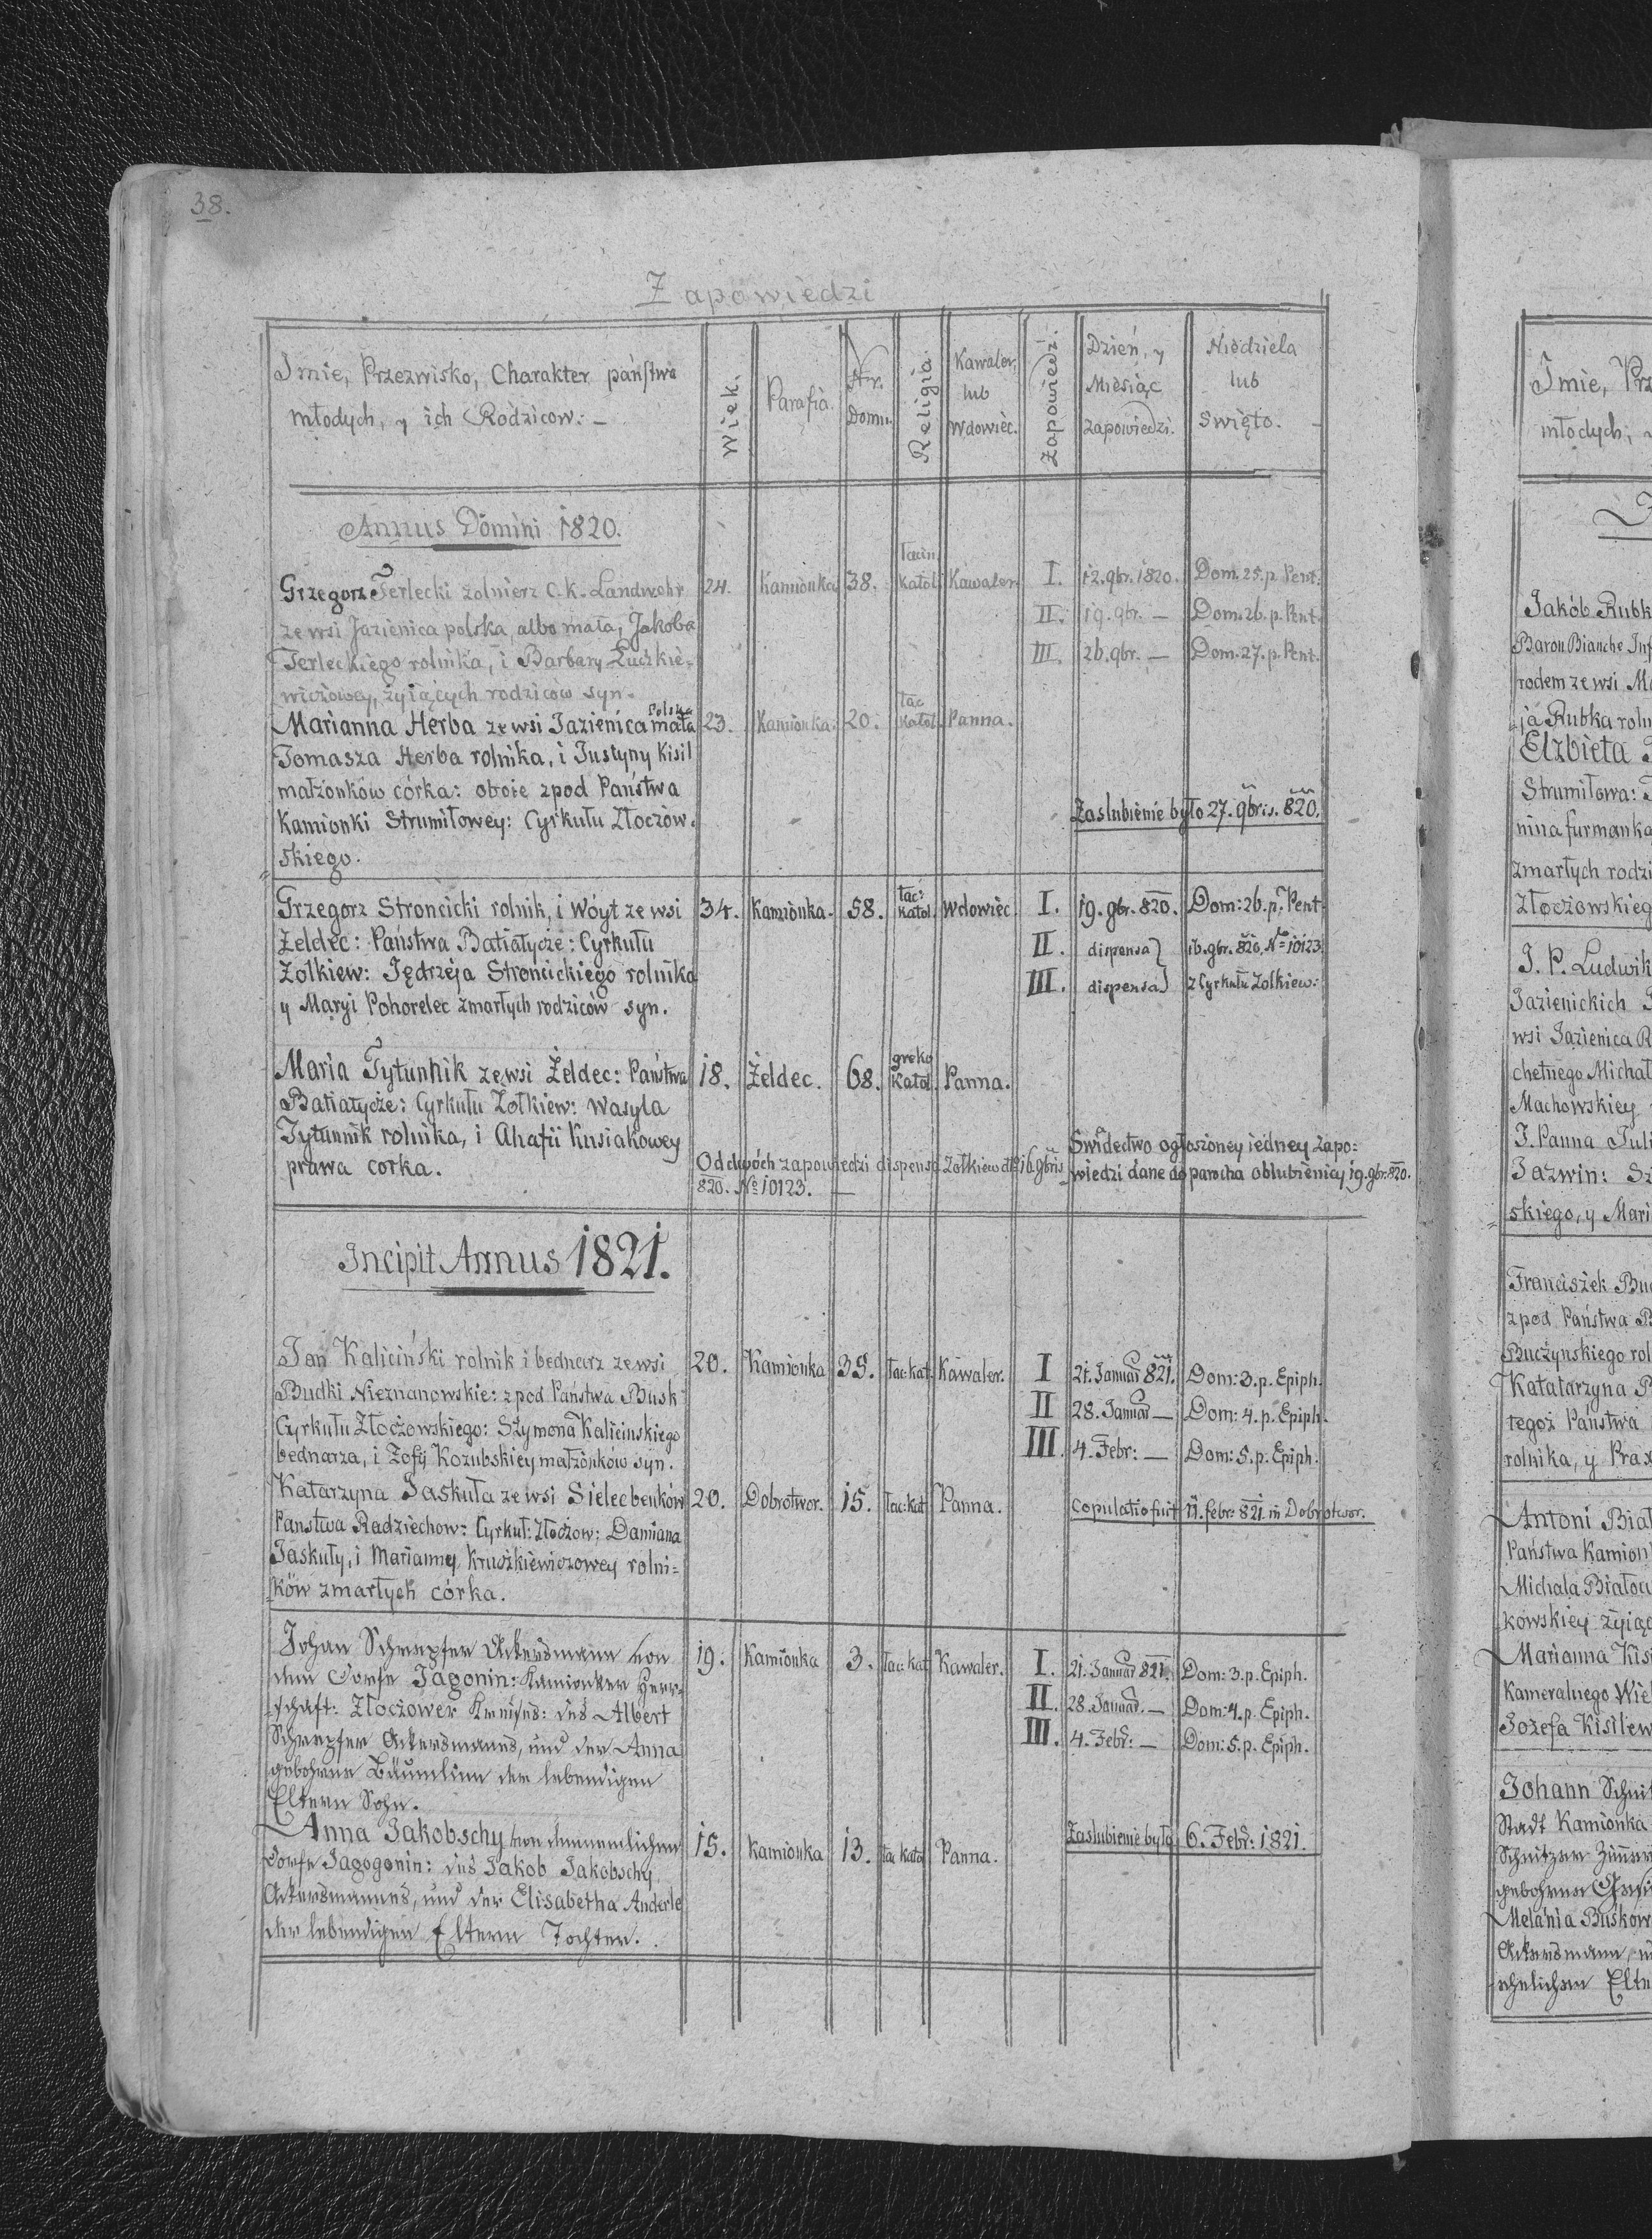 38.
Zapowiedzi
Imie, Przezwisko, Charakter państwa
młodych, y ich Rodzicow: –
Wiek.
Parafia.
Nr. Domu.
Religia.
Kawaler, lub Wdowiec.
Zapowiedzi.
Dzień, y Miesiąc Zapowiedzi.
Niedziela lub Swięto.
Annus Domini 1820.
Grzegorz Terlecki zolnierz C. K. Landwehr 24. Kamionka 38. łacin. Katol. Kawaler I. 12. 9br. 1820. Dom. 25. p. Pent:
ze wsi Jazienica polska, albo mała, Jakoba II. 19. 9br. — Dom. 26. p. Pent.
Terleckiego rolnika, i Barbary Łuczkie= III. 26. 9br. — Dom. 27. p. Pent.
wiczowey, żyiących rodziców syn.
Marianna Herba ze wsi Jazienica Polska mała 23. Kamionka. 20. łac Katol. Panna.
Tomasza Herba rolnika, i Justyny Kisil
małżonków córka: oboie zpod Państwa
Kamionki Strumiłowey: Cyrkułu Złoczów. Zaslubienie było 27. 9bris. 820.
skiego.
Grzegorz Stroncicki rolnik, i Wóyt ze wsi 34. Kamionka. 58. łac: Katol. Wdowiec I. 19. 9br. 820. Dom: 26. p. Pent:
Żeldec: Państwa Batiatycze: Cyrkułu II. dispensa} 16. 9br. 820. No 10123.
Żolkiew: Jędrzeja Stroncickiego rolnika III. dispensa} z Cyrkułu Zolkiew:
y Maryi Pohorelec zmarłych rodziców syn.
Maria Tytunnik ze wsi Żeldec: Państwa 18. Żeldec. 68. greko Katol. Panna.
Batiatycze: Cyrkułu Żołkiew: Wasyla
Tytunnik rolnika, i Ahafii Kusiakowey Świdectwo ogłoszoney iedney zapo=
prawa corka. Od dwóch zapowiedzi dispensa Żołkiew dto 16. 9bris wiedzi dane do parocha oblubienicy 19. 9br. 820.
820. No 10123. —
Incipit Annus 1821.
Jan Kaliciński rolnik i bednarz ze wsi 20. Kamionka 39. łac: kat. Kawaler. I 21. Januar 821. Dom: 3. p. Epiph.
Budki Nieznanowskie: zpod Państwa Busk II 28. Januar — Dom: 4. p. Epiph.
Cyrkułu Złoczowskiego: Szymona Kalicinskiego III. 4. Febr: — Dom: 5. p. Epiph.
bednarza, i Zofij Kozubskiey małżónków syn.
Katarzyna Jaskuła ze wsi Sielec benków 20. Dobrotwor. 15. łac: kat Panna. Copulatio fuit 11. febr: 821 in Dobrotwor.
Panstwa Radziechow: Cyrkuł: Złoczow: Damiana
Jaskuły, i Marianney Kruszkiewiczowey rolni=
ków zmarłych córka.
Johan Schnepfer Ackersmann von 19. Kamionka 3. łac: kat Kawaler. I. 21. Januar 821. Dom: 3. p. Epiph.
dem Dorfe Jagonin: Kamionker Herr= II. 28. Januar. — Dom: 4. p. Epiph.
schaft: Złoczower Kreises: des Albert III. 4. Febr: — Dom: 5. p. Epiph.
Schnepfer Ackersmanns, und der Anna
gebohrne Bäumlinn der lebendigen
Eltern Sohn.
Anna Jakobschy von dem nemlichen 15. Kamionka 13. łac kato Panna. Zaslubienie było 6. Febr: 1821.
Dorfe Jagogonin: des Jakob Jakobschy
Ackersmannes, und der Elisabetha Anderle
der lebendigen Eltern Tochter.
Imie, Prz
młodych,
Jakób Rubk
Baron Bianche Inf
rodem ze wsi
ja Rubka roln
Elzbieta
Strumiłowa:
nina furmanka
zmarłych rodzi
Złoczowskieg
J. P. Ludwik
Jazienickich
wsi Jazienica
chetnego Michał
Machowskiey
J. Panna Juli
Jazwin:
skiego, y Mari
Franciszek
zpod Państwa
Buczynskiego rol
Katatarzyna
tegoż Państwa
rolnika, y
Antoni Biał
Państwa Kamion
Michala
kowskiey żyiąc
Marianna Kis
Kameralnego
Jozefa Kisilew
Johann Schni
Stadt Kamionka
Schnitzer
gebohrne
Melania
Ackersmann,
ehelichen Elte